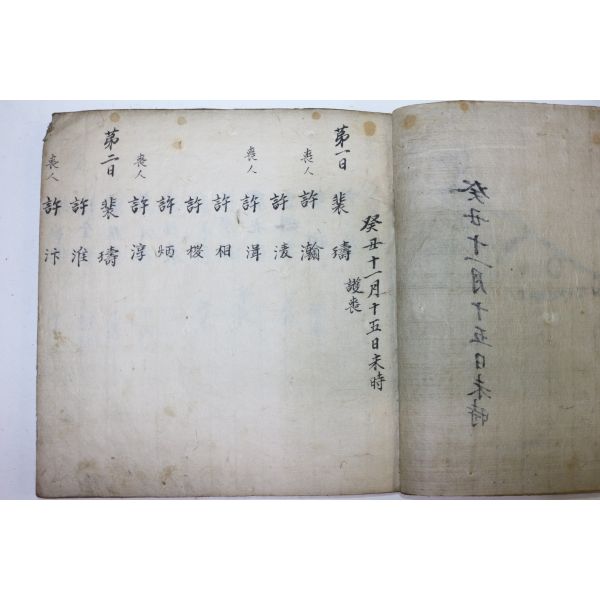 癸丑十一月十五日未時
癸丑十一月十五日未時
護喪
第一日 裴璹
喪人 許瀚
許淩
喪人 許
許相
許
許炳
喪人 許淳
第二日 裴璹
許淮
喪人 許汴